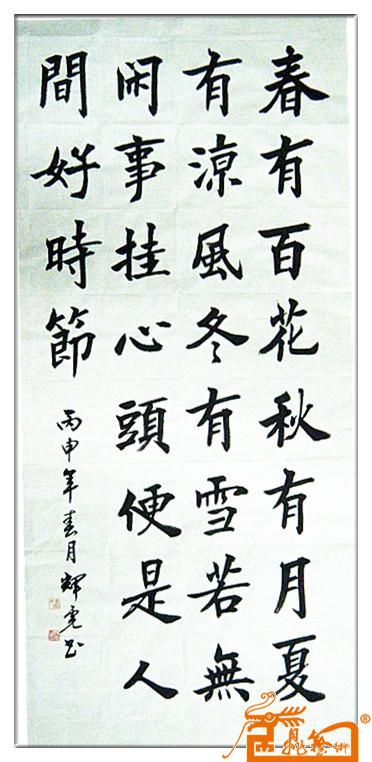 春有百花秋有月夏
有涼風冬有雪若無
闲事挂心頭便是人
間好時節
丙申年春月輝堯书